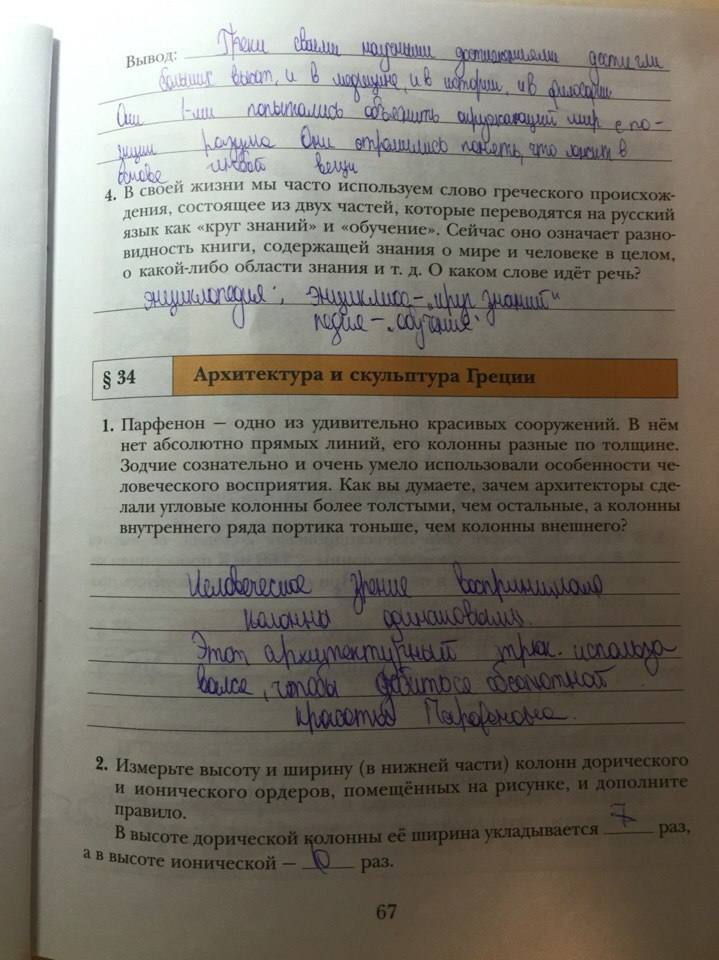 Вывод: Греки своими научными достижениями достигли
больших высот, и в медицине, и в истории, и в философии
Они 1-ми попытались объяснить окружающий мир с по-
зиции разума Они стремились понять, что лежит в
основе любой вещи
4. В своей жизни мы часто используем слово греческого происхож-
дения, состоящее из двух частей, которые переводятся на русский
язык как «круг знаний» и «обучение». Сейчас оно означает разно-
видность книги, содержащей знания о мире и человеке в целом,
о какой-либо области знания и т. д. О каком слове идёт речь?
энциклопедия; энциклиос-„круг знаний"
педия-„обучение"
§ 34 Архитектура и скульптура Греции
1. Парфенон — одно из удивительно красивых сооружений. В нём
нет абсолютно прямых линий, его колонны разные по толщине.
Зодчие сознательно и очень умело использовали особенности че-
ловеческого восприятия. Как вы думаете, зачем архитекторы сде-
лали угловые колонны более толстыми, чем остальные, а колонны
внутреннего ряда портика тоньше, чем колонны внешнего?
Человеческое зрение воспринимало
колонны одинаковыми.
Этот архитектурный трюк использо
вался, чтобы добиться абсолютной
красоты Парфенона.
2. Измерьте высоту и ширину (в нижней части) колонн дорического
и ионического ордеров, помещённых на рисунке, и дополните
правило.
В высоте дорической колонны её ширина укладывается 7 раз,
а в высоте ионической — раз.
67